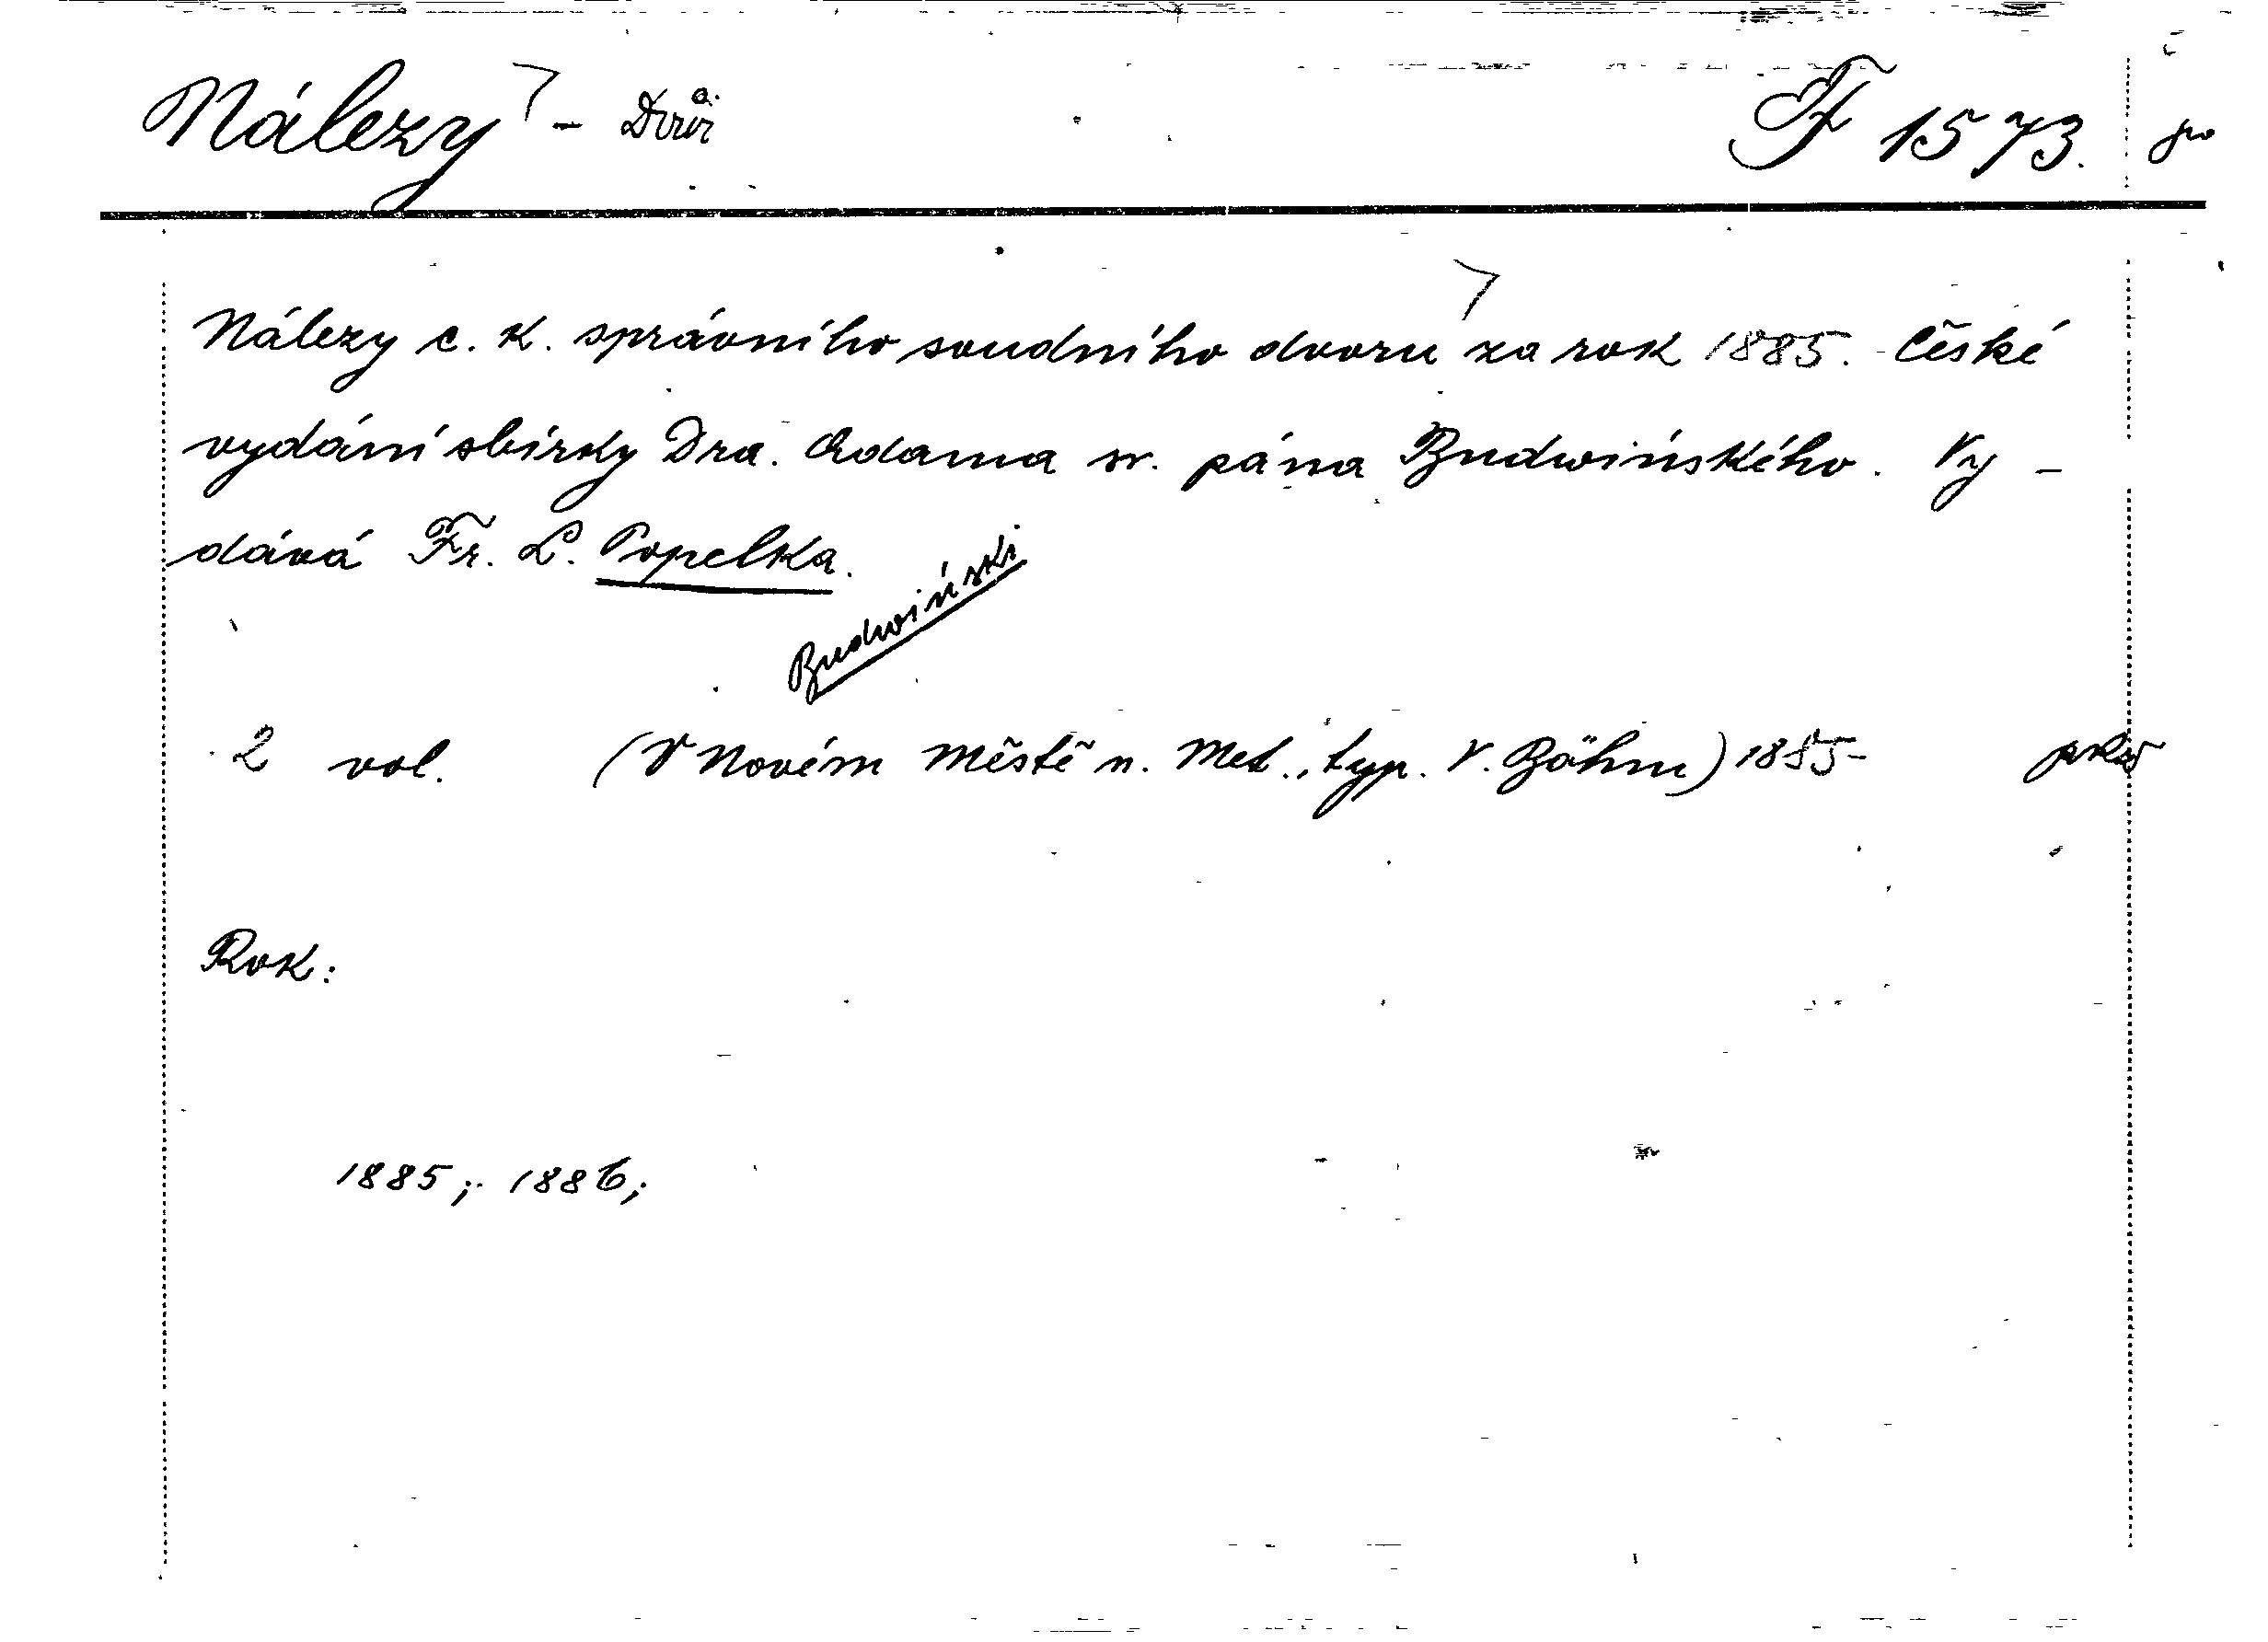 Nálezy - Dvůr F 1573.
Nálezy c. k. správního soudního dvoru za rok 1885. České
vydání sbírky Dra. Adama sv. pána Budwińského. Vy -
dává Fr. L. Popelka.
Budwiński
2 vol. (V Novém Městě n. Met., typ. V. Böhm) 1885-
Rok:
1885; 1886;